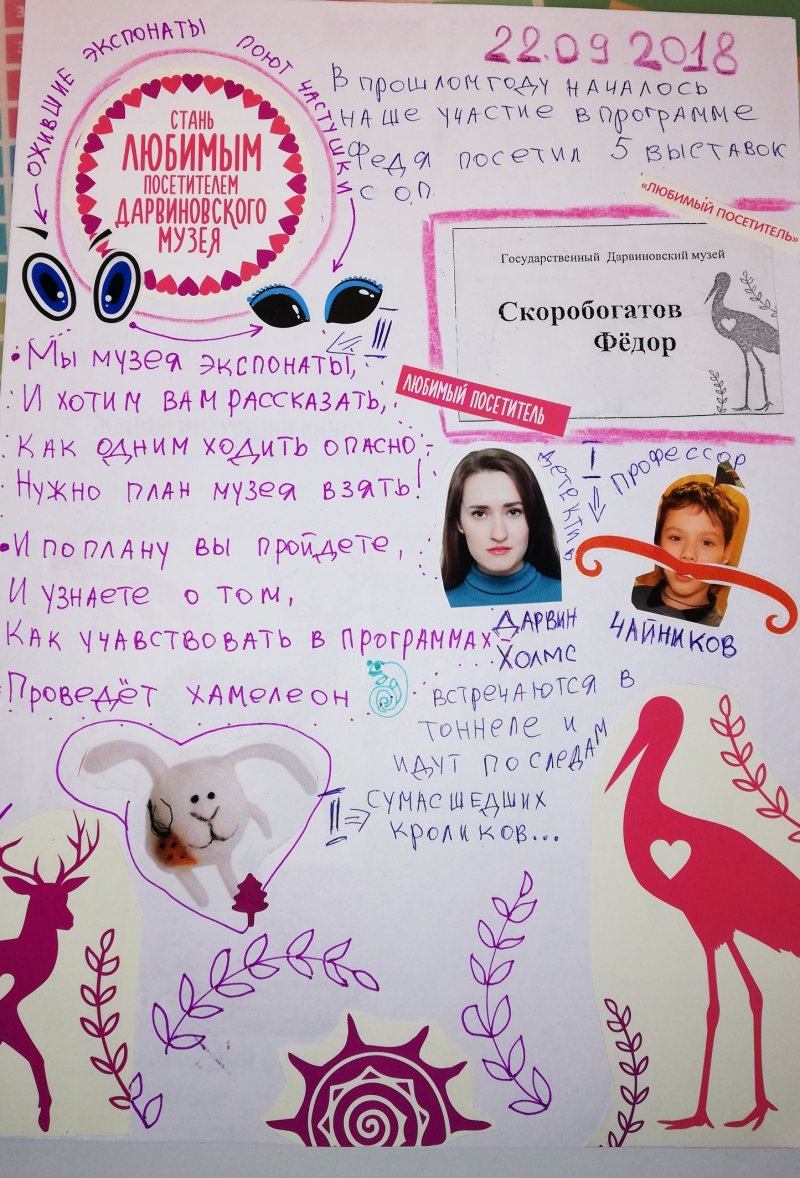 22.09 2018
ОЖИВШИЕ ЭКСПОНАТЫ ПОЮТ ЧАСТУШКИ
СТАНЬ
ЛЮБИМЫМ
ПОСЕТИТЕЛЕМ
ДАРВИНОВСКОГО
МУЗЕЯ
В прошлом году началось
наше участие в программе
Федя посетил 5 выставок
с О.П.
«ЛЮБИМЫЙ ПОСЕТИТЕЛЬ»
Государственный Дарвиновский музей
Скоробогатов
Фёдор
ЛЮБИМЫЙ ПОСЕТИТЕЛЬ
III
Мы музея экспонаты,
И хотим вам рассказать,
Как одним ходить опасно-
Нужно план музея взять!
И по плану вы пройдете,
И узнаете о том,
Как учавствовать в программах-
Проведёт хамелеон
I
ДЕТЕКТИВЪ
ДАРВИН
ХОЛМС
ПРОФЕССОР
ЧАЙНИКОВ
встречаются в
тоннеле и
идут по следам
II
сумасшедших
кроликов...